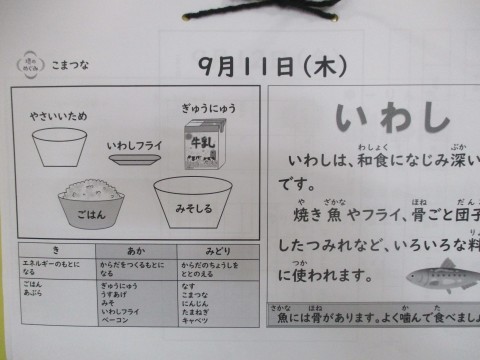 港の
めぐみ
こまつな
9月11日(木)
やさいいため
ぎゅうにゅう
いわしフライ
牛乳
ごはん
みそしる
き
あか
みどり
エネルギーのもとに
なる
からだをつくるもとに
なる
からだのちょうしを
ととのえる
ごはん
あぶら
ぎゅうにゅう
うすあげ
みそ
いわしフライ
ベーコン
なす
こまつな
にんじん
たまねぎ
キャベツ
いわし
わしょく
ぶか
いわしは、和食になじみ深い
です。
や
ざかな
ほね
だん
焼き魚やフライ、骨ごと団子
したつみれなど、いろいろな料
つか
に使われます。
さかな
ほね
か
た
魚には骨があります。よく噛んで食べましょ